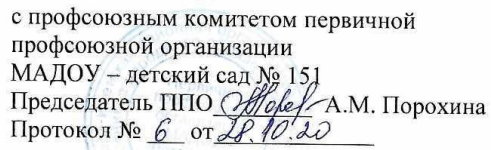 с профсоюзным комитетом первичной
профсоюзной организации
МАДОУ – детский сад № 151
Председатель ППО А.М. Порохина
Протокол № 6 от 28.10.20